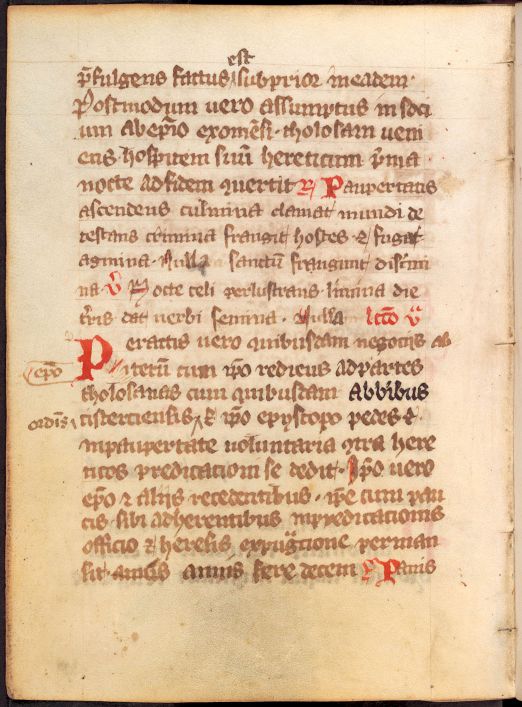 est
p̄fulgens factus subprior in eadem·
Postmodum vero assumptus in soci
um ab ep̄o exomēsi· tholosam veni
ens· hospitem suū hereticum p̄ma
nocte ad fidem ꝯuertit ℟ Paupertatis
ascendens culmina clamat mundi de
testans crimina frangit hostes ⁊ fugat
agmina· Nulla sanctū frangunt discrim
na ℣ Nocte celi perlustrans limina die
dat verbi semina· Nulla lctō
Peractis vero quibusdam negociis ab
ep̄o iterū cum ip̄o rediens ad partes
tholosanas cum quibusdam Abbibus
ordīs cisterciensis, & ip̄o epyscopo pedes &
in paupertate voluntaria ꝯtra here
ticos predicationi se dedit· Ip̄o vero
ep̄o ⁊ aliis recedentibus· ip̄e cum pau
cis· sibi adherentibus in predicationis
officio & heresis expugͣtione perman
sit· annis fere decem ℟ Panis